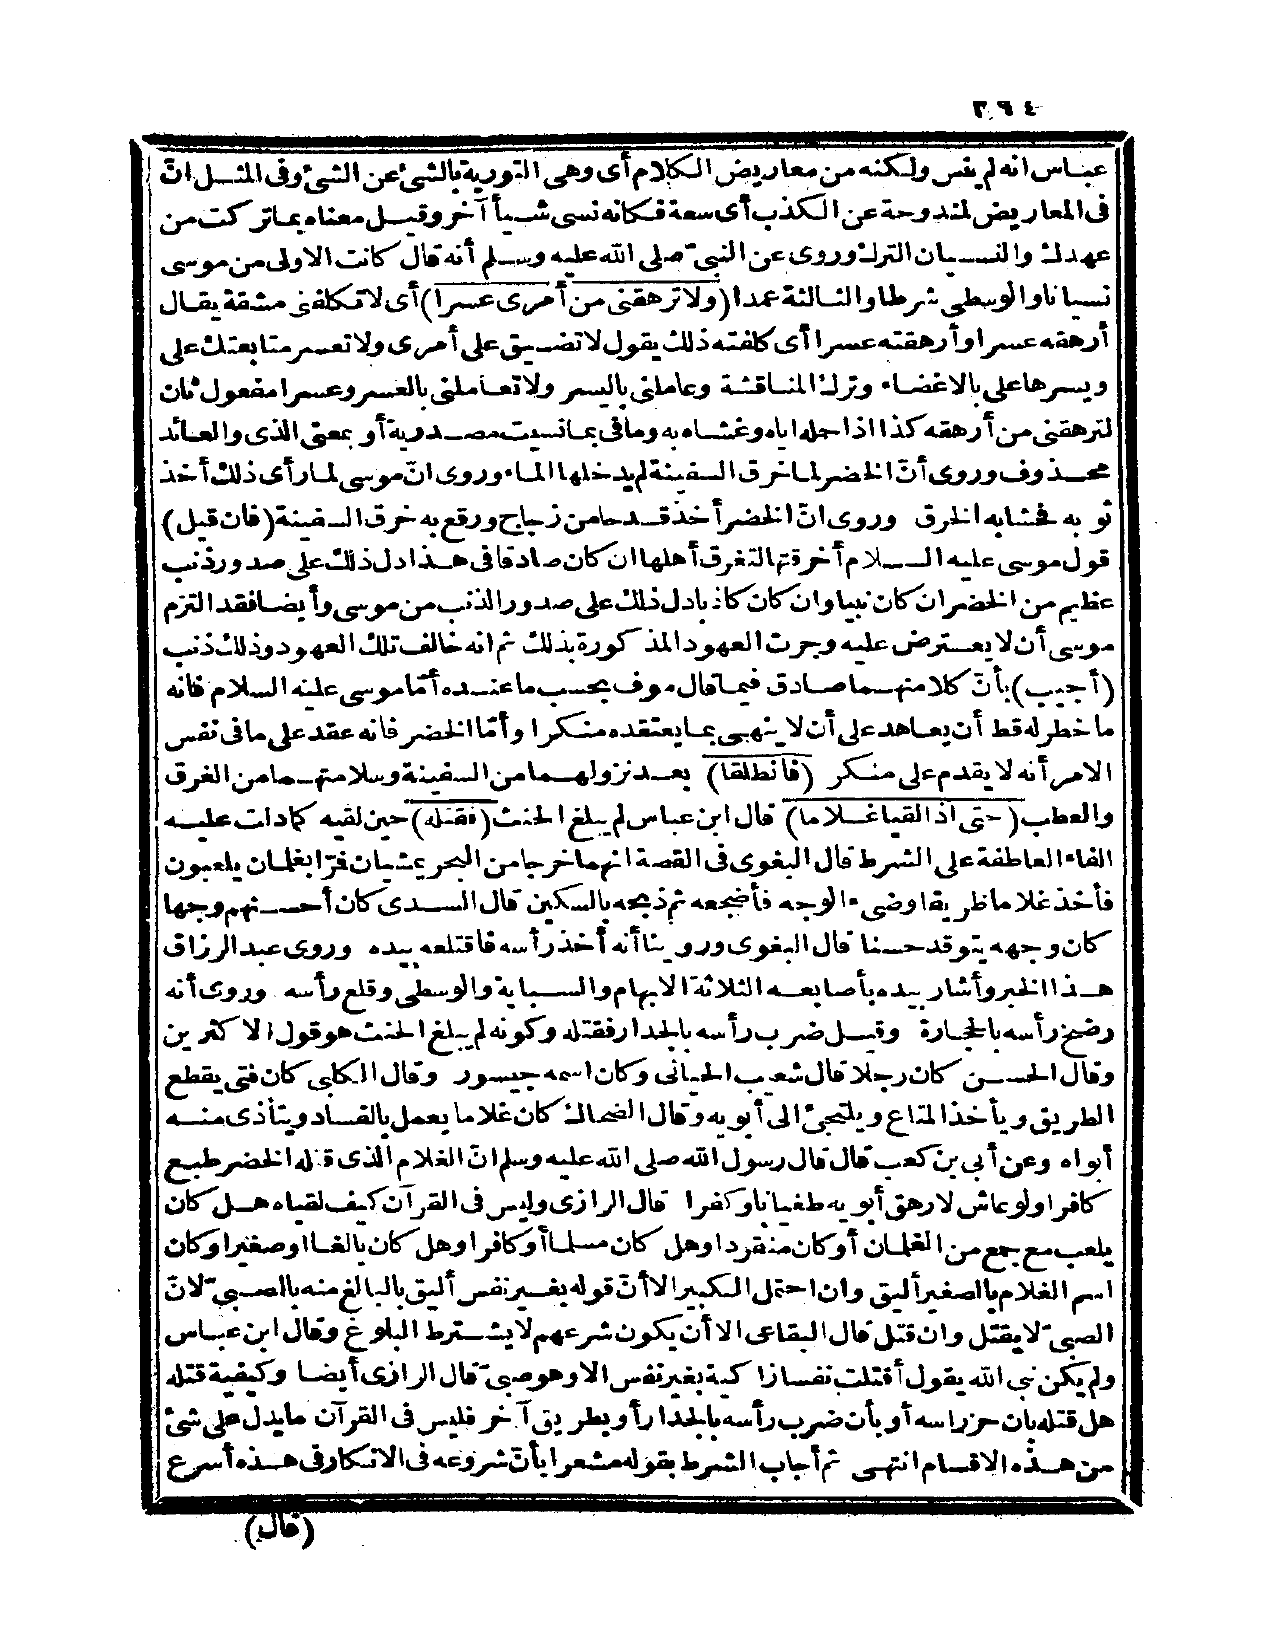 ٣٩٤
عباس انه لم ينس ولكنه من معاريض الكلام أى وهى التورية بالشئ عن الشئ وفى المثل انّ
فى المعاريض لمندوحة عن الكذب أى سعة فكانه نسى شيأ آخر وقيل معناه بما تركت من
عهدك والنسيان الترك وروى عن النبىّ صلى الله عليه وسلم أنه قال كانت الاولى من موسى
نسيانا والوسطى شرطا والثالثة عمدا (ولا ترهقنى من أمرى عسرا) أى لا تكلفنى مشقة يقال
أرهقه عسرا وأرهقته عسرا أى كلفته ذلك يقول لا تضيق على أمرى ولا تعسر متابعتك على
ويسرها على بالاغضاء وترك المناقشة وعاملنى باليسر ولا تعاملنى بالعسر وعسرا مفعول ثان
لترهقنى من أرهقه كذا اذا حمله اياه وغشاه به وما فى بما نسيت مصدرية أو بمعنى الذى والعائد
محذوف وروى أنّ الخضر لما خرق السفينة لم يدخلها الماء وروى انّ موسى لما رأى ذلك أخذ
ثوبه فحشا به الخرق وروى انّ الخضر أخذ قدحا من زجاج ورقع به خرق السفينة (فان قيل)
قول موسى عليه السلام أخرقتها لتغرق أهلها ان كان صادقا فى هذا دل ذلك على صدور ذنب
عظيم من الخضر ان كان نبيا وان كان كاذبا دل ذلك على صدور الذنب من موسى وأيضا فقد التزم
موسى أن لا يعترض عليه وجرت العهود المذكورة بذلك ثم انه خالف تلك العهود وذلك ذنب
(أجيب) بأنّ كلا منهما صادق فيما قال موف بحسب ما عنده أمّا موسى عليه السلام فانه
ما خطر له قط أن يعاهد على أن لا ينهى عما يعتقده منكرا وأمّا الخضر فانه عقد على ما فى نفس
الامر أنه لا يقدم على منكر (فانطلقا) بعد نزولهما من السفينة وسلامتهما من الغرق
والعطب (حتى اذا لقيا غلاما) قال ابن عباس لم يبلغ الحنث (فقتله) حين لقيه كما دلت عليه
الفاء العاطفة على الشرط قال البغوى فى القصة انهما خرجا من البحر يمشيان فمرّا بغلمان يلعبون
فأخذ غلاما ظريفا وضىء الوجه فأضجعه ثم ذبحه بالسكين قال السدى كان أحسنهم وجها
كان وجهه يتوقد حسنا قال البغوى وروينا أنه أخذ رأسه فاقتلعه بيده وروى عبد الرزاق
هذا الخبر وأشار بيده بأصابعه الثلاثة الابهام والسبابة والوسطى وقلع رأسه وروى أنه
رضخ رأسه بالحجارة وقيل ضرب رأسه بالجدار فقتله وكونه لم يبلغ الحنث هو قول الاكثرين
وقال الحسن كان رجلا قال شعيب الجبائى وكان اسمه جيسور وقال الكلبى كان فتى يقطع
الطريق ويأخذ المتاع ويلتجئ الى أبويه وقال الضحاك كان غلاما يعمل بالفساد ويتأذى منه
أبواه وعن أبى بن كعب قال قال رسول الله صلى الله عليه وسلم انّ الغلام الذى قتله الخضر طبع
كافرا ولو عاش لارهق أبويه طغيانا وكفرا قال الرازى وليس فى القرآن كيف لقياه هل كان
يلعب مع جمع من الغلمان أو كان منفردا وهل كان مسلما أو كافرا وهل كان بالغا او صغيرا وكان
اسم الغلام بالصغير أليق وان احتمل الكبير الا أنّ قوله بغير نفس أليق بالبالغ منه بالصبىّ لانّ
الصبىّ لا يقتل وان قتل قال البقاعى الا أن يكون شرعهم لا يشترط البلوغ وقال ابن عباس
ولم يكن نبى الله يقول أقتلت نفسا زاكية بغير نفس الا وهو صبىّ قال الرازى أيضا وكيفية قتله
هل قتله بان حز رأسه أو بأن ضرب رأسه بالجدار أو بطريق آخر فليس فى القرآن ما يدل على شئ
من هذه الاقسام انتهى ثم أجاب الشرط بقوله مشعرا بأنّ شروعه فى الانكار فى هذه أسرع
(قال)